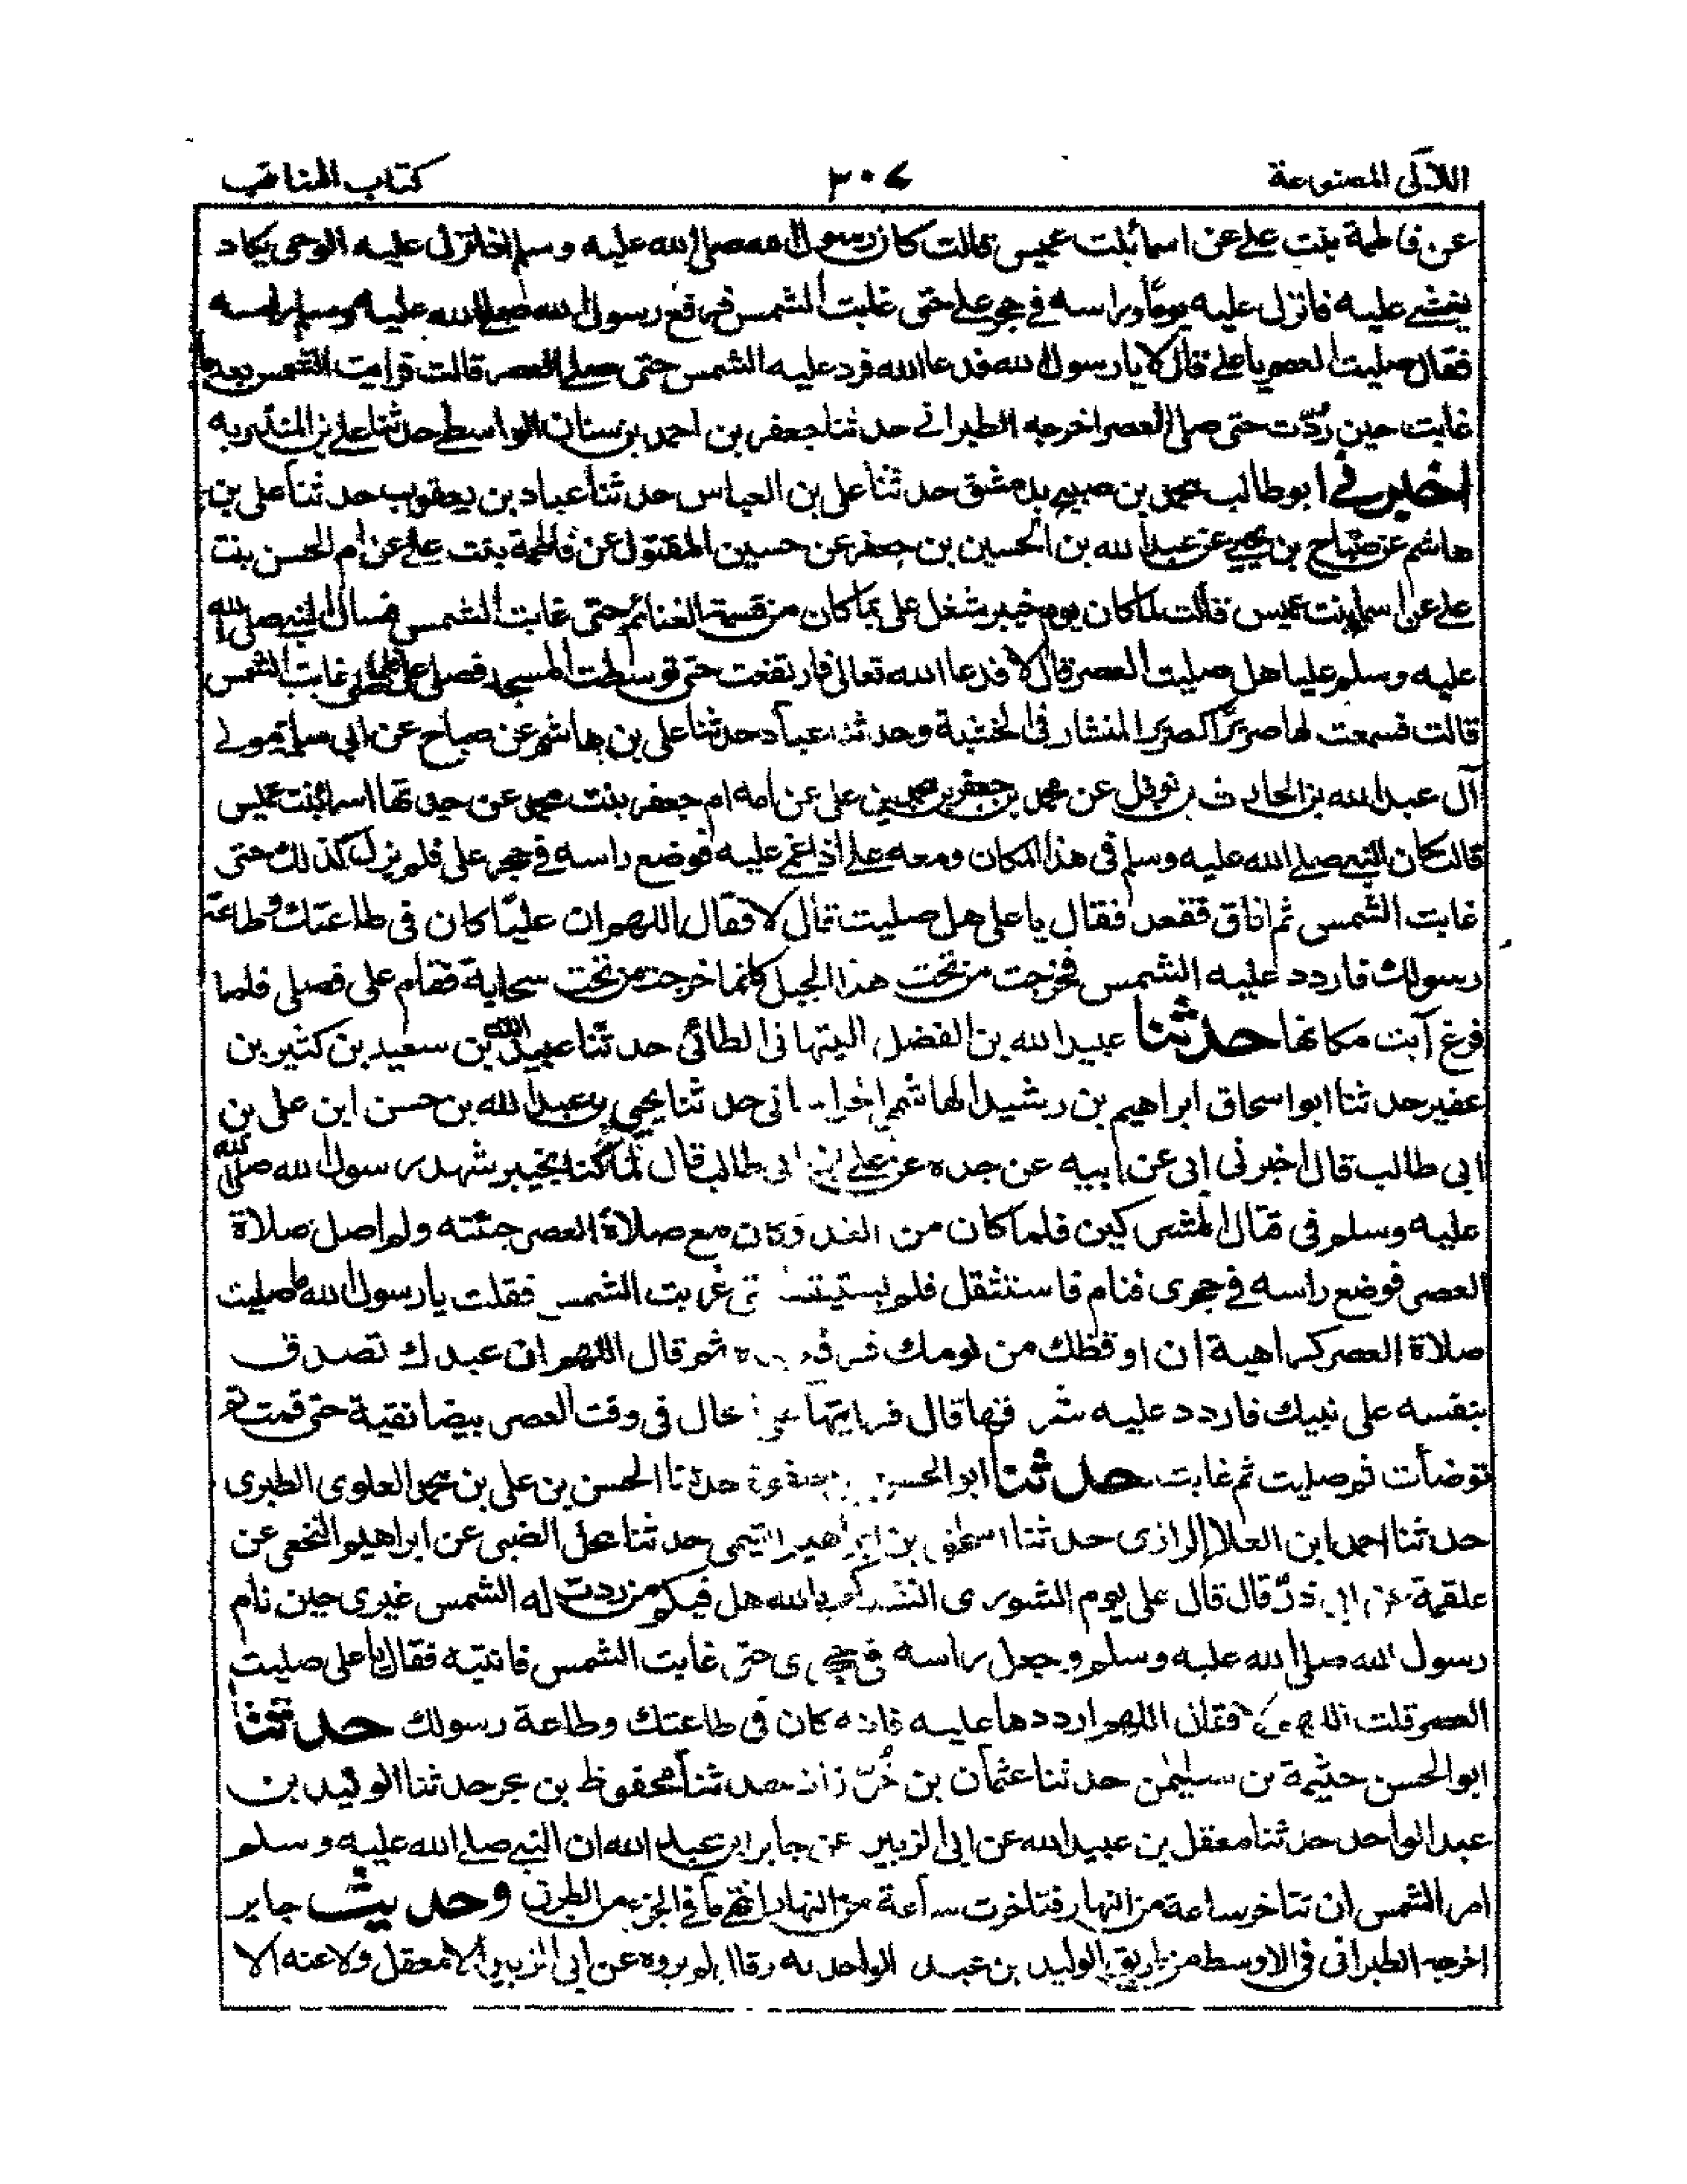 اللآلى المصنوعة ٣٠٧ كتاب المناقب
عن فاطمة بنت على عن اسما بنت عميس قالت كان رسول الله صلى الله عليه وسلم اذا نزل عليه الوحى يكاد
يغشى عليه فانزل عليه يوما وراسه فى حجر على حتى غابت الشمس فرفع رسول الله صلى الله عليه وسلم راسه
فقال صليت العصر يا على قال لا يا رسول الله فدعا الله فرد عليه الشمس حتى صلى العصر قالت فرايت الشمس بعد ما
غابت حين رُدّت حتى صلى العصر اخرجه الطبرانى حدثنا جعفر بن احمد بن سنان الواسطى حدثنا على بن المنذر به
اخبرنى ابو طالب محمد بن صبيح بدمشق حدثنا على بن العباس حدثنا عباد بن يعقوب حدثنا على بن
هاشم عن صباح بن يحيى عن عبد الله بن الحسين بن جعفر عن حسين المقتول عن فاطمة بنت على عن ام الحسن بنت
على عن اسما بنت عميس قالت لما كان يوم خيبر شغل على بما كان من قسمة الغنائم حتى غابت الشمس فسال النبى صلى الله
عليه وسلم عليا هل صليت العصر قال لا فدعا الله تعالى فارتفعت حتى توسطت المسجد فصلى على العصر فلما صلى غابت الشمس
قالت فسمعت لها صريرا كصرير المنشار فى الخشبة وحدثنا عباد حدثنا على بن هاشم عن صباح عن ابى سلمة مولى
آل عبد الله بن الحارث بن نوفل عن محمد بن جعفر بن محمد بن على عن امه ام جعفر بنت محمد عن جدتها اسما بنت عميس
قالت كان النبى صلى الله عليه وسلم فى هذا المكان ومعه على اذ اغمى عليه فوضع راسه فى حجر على فلم يزل كذلك حتى
غابت الشمس ثم افاق فقعد فقال يا على هل صليت قال لا فقال اللهم ان عليّا كان فى طاعتك وطاعة
رسولك فاردد عليه الشمس فخرجت من تحت هذا الجبل كانما خرجت من تحت سحابة فقام على فصلى فلما
فرغ آبت مكانها حدثنا عبيد الله بن الفضل التيهانى الطائى حدثنا عبيد الله بن سعيد بن كثير بن
عفير حدثنا ابو اسحاق ابراهيم بن رشيد الهاشمى الخراسانى حدثنا يحيى بن عبد الله بن حسن ابن على بن
ابى طالب قال اخبرنى ابى عن ابيه عن جده عن على بن ابى طالب قال لما كنا بخيبر شهد رسول الله صلى الله
عليه وسلم فى قتال المشركين فلما كان من الغد وكان مع صلاة العصر جئته ولم اصل صلاة
العصر فوضع راسه فى حجرى فنام فاستثقل فلم يستيقظ حتى غربت الشمس فقلت يا رسول الله ما صليت
صلاة العصر كراهية ان اوقظك من نومك فرفع يده ثم قال اللهم ان عبدك تصدق
بنفسه على نبيك فاردد عليه شرقها قال فرايتها على الحال فى وقت العصر بيضا نقية حتى قمت ثم
توضأت ثم صليت ثم غابت حدثنا ابو الحسن بن صفوة حدثنا الحسن بن على بن محمد العلوى الطبرى
حدثنا احمد ابن العلا الرازى حدثنا اسحق بن ابراهيم التيمى حدثنا محل الضبى عن ابراهيم النخعى عن
علقمة عن ابى ذرّ قال قال على يوم الشورى انشدكم بالله هل فيكم من ردت له الشمس غيرى حين نام
رسول الله صلى الله عليه وسلم وجعل راسه فى حجرى حتى غابت الشمس فانتبه فقال يا على صليت
العصر قلت اللهم لا فقال اللهم ارددها عليه فانه كان فى طاعتك وطاعة رسولك حدثنا
ابو الحسن خيثمة بن سليمن حدثنا عثمان بن خُرّزاذ حدثنا محفوظ بن بحر حدثنا الوليد بن
عبد الواحد حدثنا معقل بن عبيد الله عن ابى الزبير عن جابر ابن عبد الله ان النبى صلى الله عليه وسلم
امر الشمس ان تتاخر ساعة من النهار فتاخرت ساعة من النهار انتهى ما فى الجزء من الطرق وحديث جابر
اخرجه الطبرانى فى الاوسط من طريق الوليد بن عبد الواحد به وقال لم يروه عن ابى الزبير الا معقل ولا عنه الا